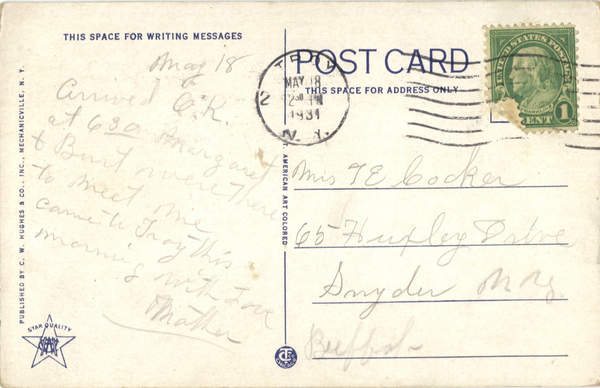 THIS SPACE FOR WRITING MESSAGES
May 18
Arrived O.K.
at 6 30 Margaret
& Burt were there
to meet me
came to Troy this
morning with Love
Mother
PUBLISHED BY C. W. HUGHES & CO., INC., MECHANICVILLE, N. Y.
STAR QUALITY
AMERICAN ART COLORED
POST CARD
THIS SPACE FOR ADDRESS ONLY
TROY
MAY 18
2 PM
1931
N. Y.
2
UNITED STATES POSTAGE
CENT 1
Mrs T E Cocker
65 Huxley Drive
Snyder N.Y.
Buffalo